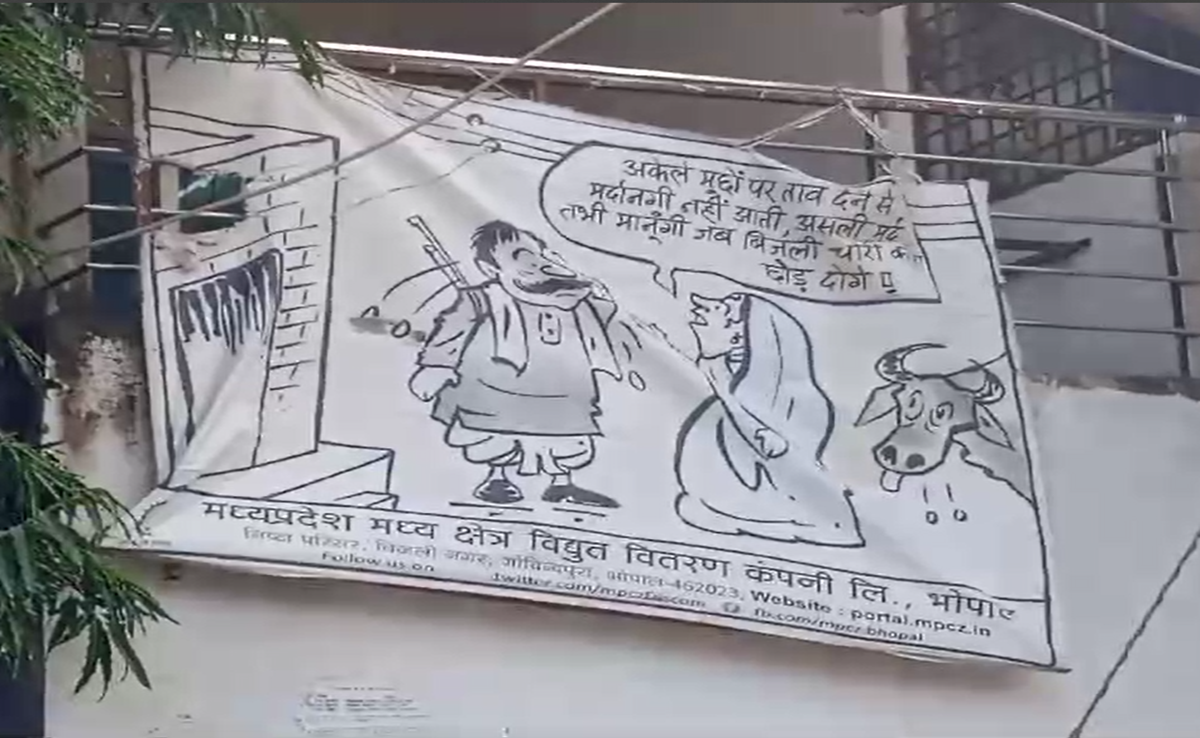 अकेले मूछों पर ताव देने से
मर्दानगी नहीं आती, असली मर्द
तभी मानूँगी जब बिजली चोरी
छोड़ दोगे
मध्यप्रदेश मध्य क्षेत्र विद्युत वितरण कंपनी लि., भोपाल
निष्ठा परिसर, बिजली नगर, गोविन्दपुरा, भोपाल-462023, Website : portal.mpcz.in
Follow us on twitter.com/mpczdiscom fb.com/mpcz.bhopal